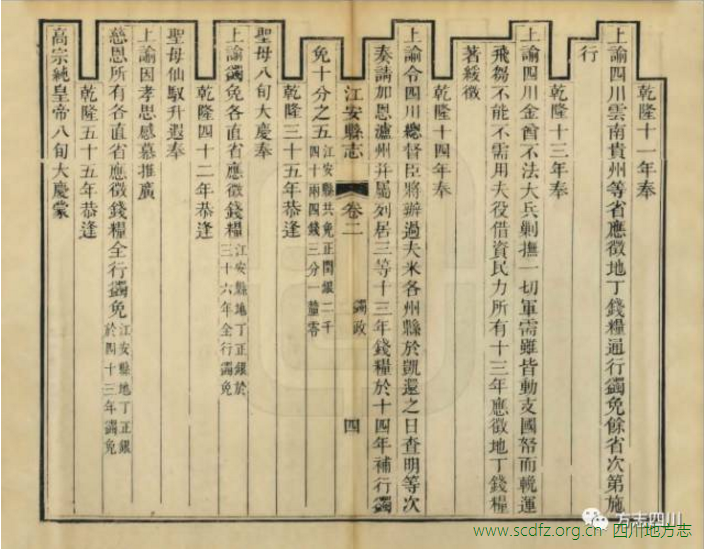 乾隆十一年奉
上諭四川雲南貴州等省應徵地丁錢糧通行蠲免餘省次第施
行
乾隆十三年奉
上諭四川金酋不法大兵剿撫一切軍需雖皆動支國帑而輓運
飛芻不能不需用夫役借資民力所有十三年應徵地丁錢糧
著緩徵
乾隆十四年奉
上諭令四川總督臣將辦過夫米各州縣於凱還之日查明等次
奏請加恩瀘州幷屬列居三等十三年錢糧於十四年補行蠲
江安縣志 卷二 蠲政 四
免十分之五江安縣共免正閏銀二千
四十兩四錢三分一釐零
乾隆三十五年恭逢
聖母八旬大慶奉
上諭蠲免各直省應徵錢糧江安縣地丁正銀於
三十六年全行蠲免
乾隆四十二年恭逢
聖母仙馭升遐奉
上諭因孝思感慕推廣
慈恩所有各直省應徵錢糧全行蠲免江安縣地丁正銀
於四十三年蠲免
乾隆五十五年恭逢
高宗純皇帝八旬大慶蒙
方志四川
www.scdfz.org.cn 四川地方志